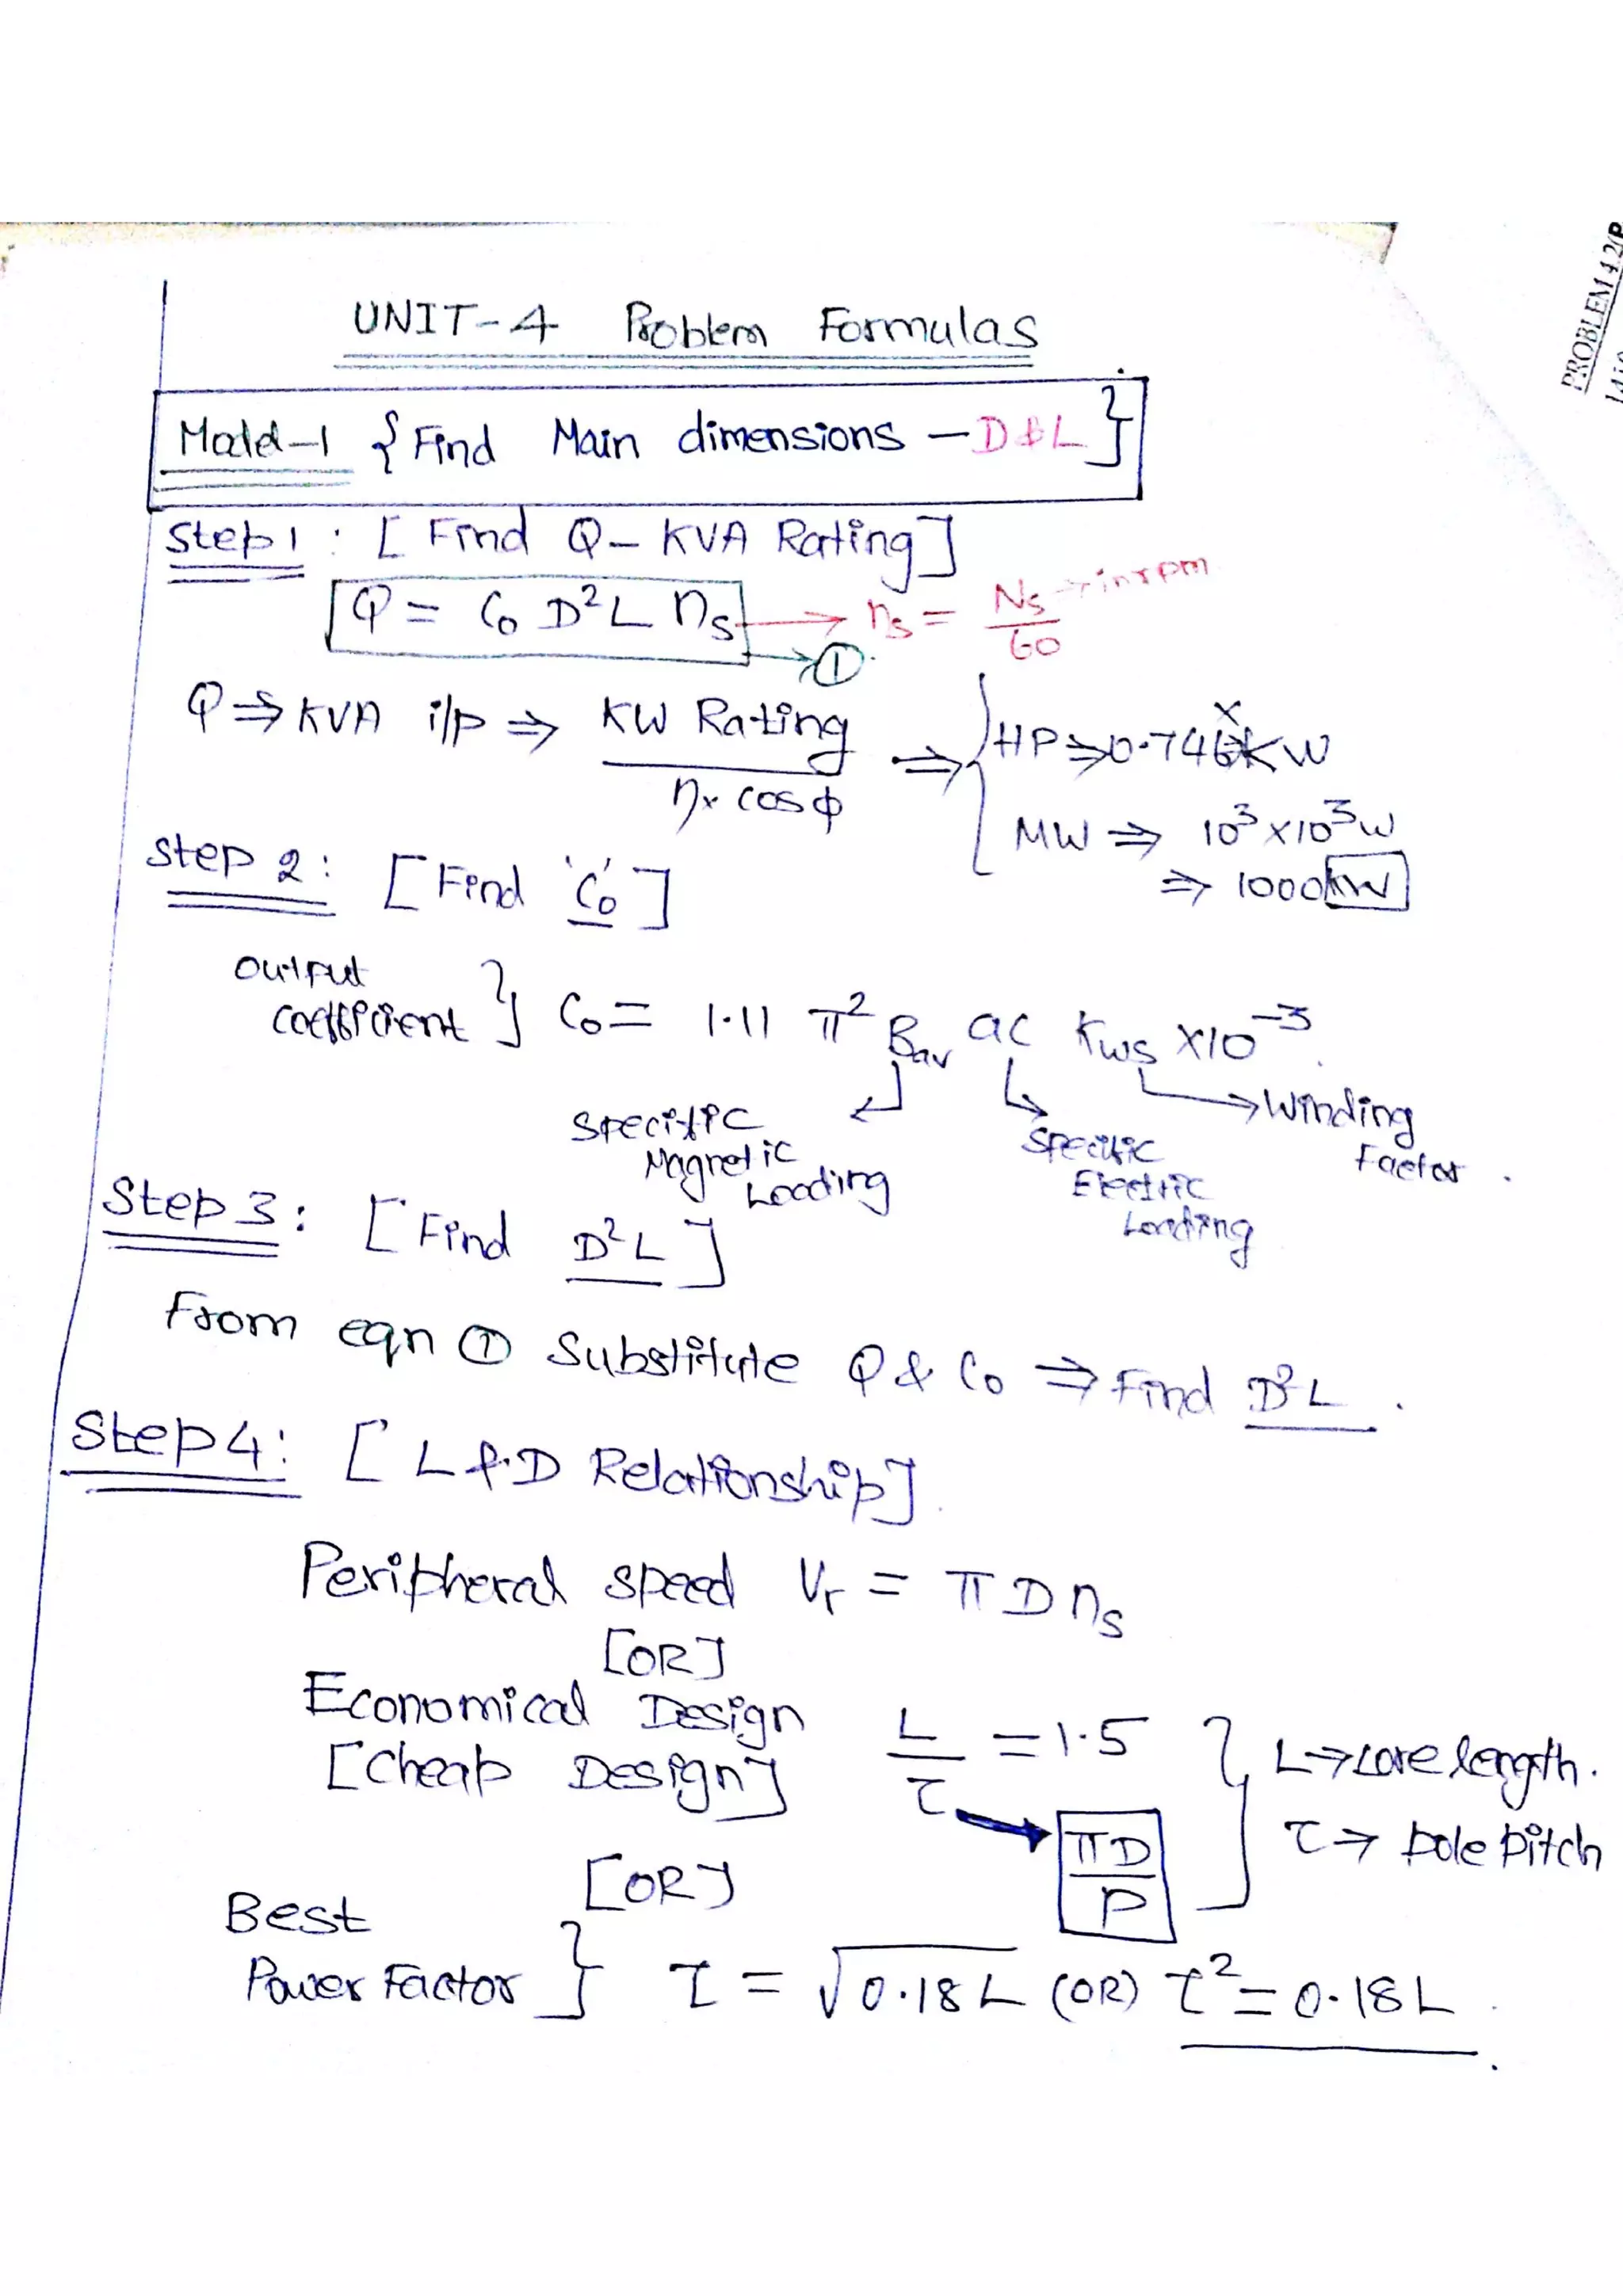 PROBLEM 4.2(P
UNIT-4 Problem Formulas
Model-1 { Find Main dimensions - D & L }
Step 1 : [ Find Q - KVA Rating ]
Q = C₀ D²L nₛ → nₛ = Nₛ/60 → in rpm
→ ①
Q ⇒ KVA i/p ⇒ KW Rating / η × cos ϕ ⇒ { HP ⇒ 0.746 × KW
MW ⇒ 10³ × 10³ W
⇒ 1000 KW
Step 2 : [ Find 'C₀' ]
Output
Coefficient } C₀ = 1.11 π² Bav ac Kws × 10⁻³
Specific Magnetic Loading
Specific Electric Loading
Winding Factor
Step 3 : [ Find D²L ]
From eqn ① Substitute Q & C₀ ⇒ Find D²L .
Step 4 : [ L & D Relationship ]
Peripheral speed Vr = π D nₛ
[OR]
Economical Design
[Cheap Design] L/τ = 1.5 } L → core length.
τ → pole pitch
πD/P
[OR]
Best
Power Factor } τ = √0.18 L (OR) τ² = 0.18 L .